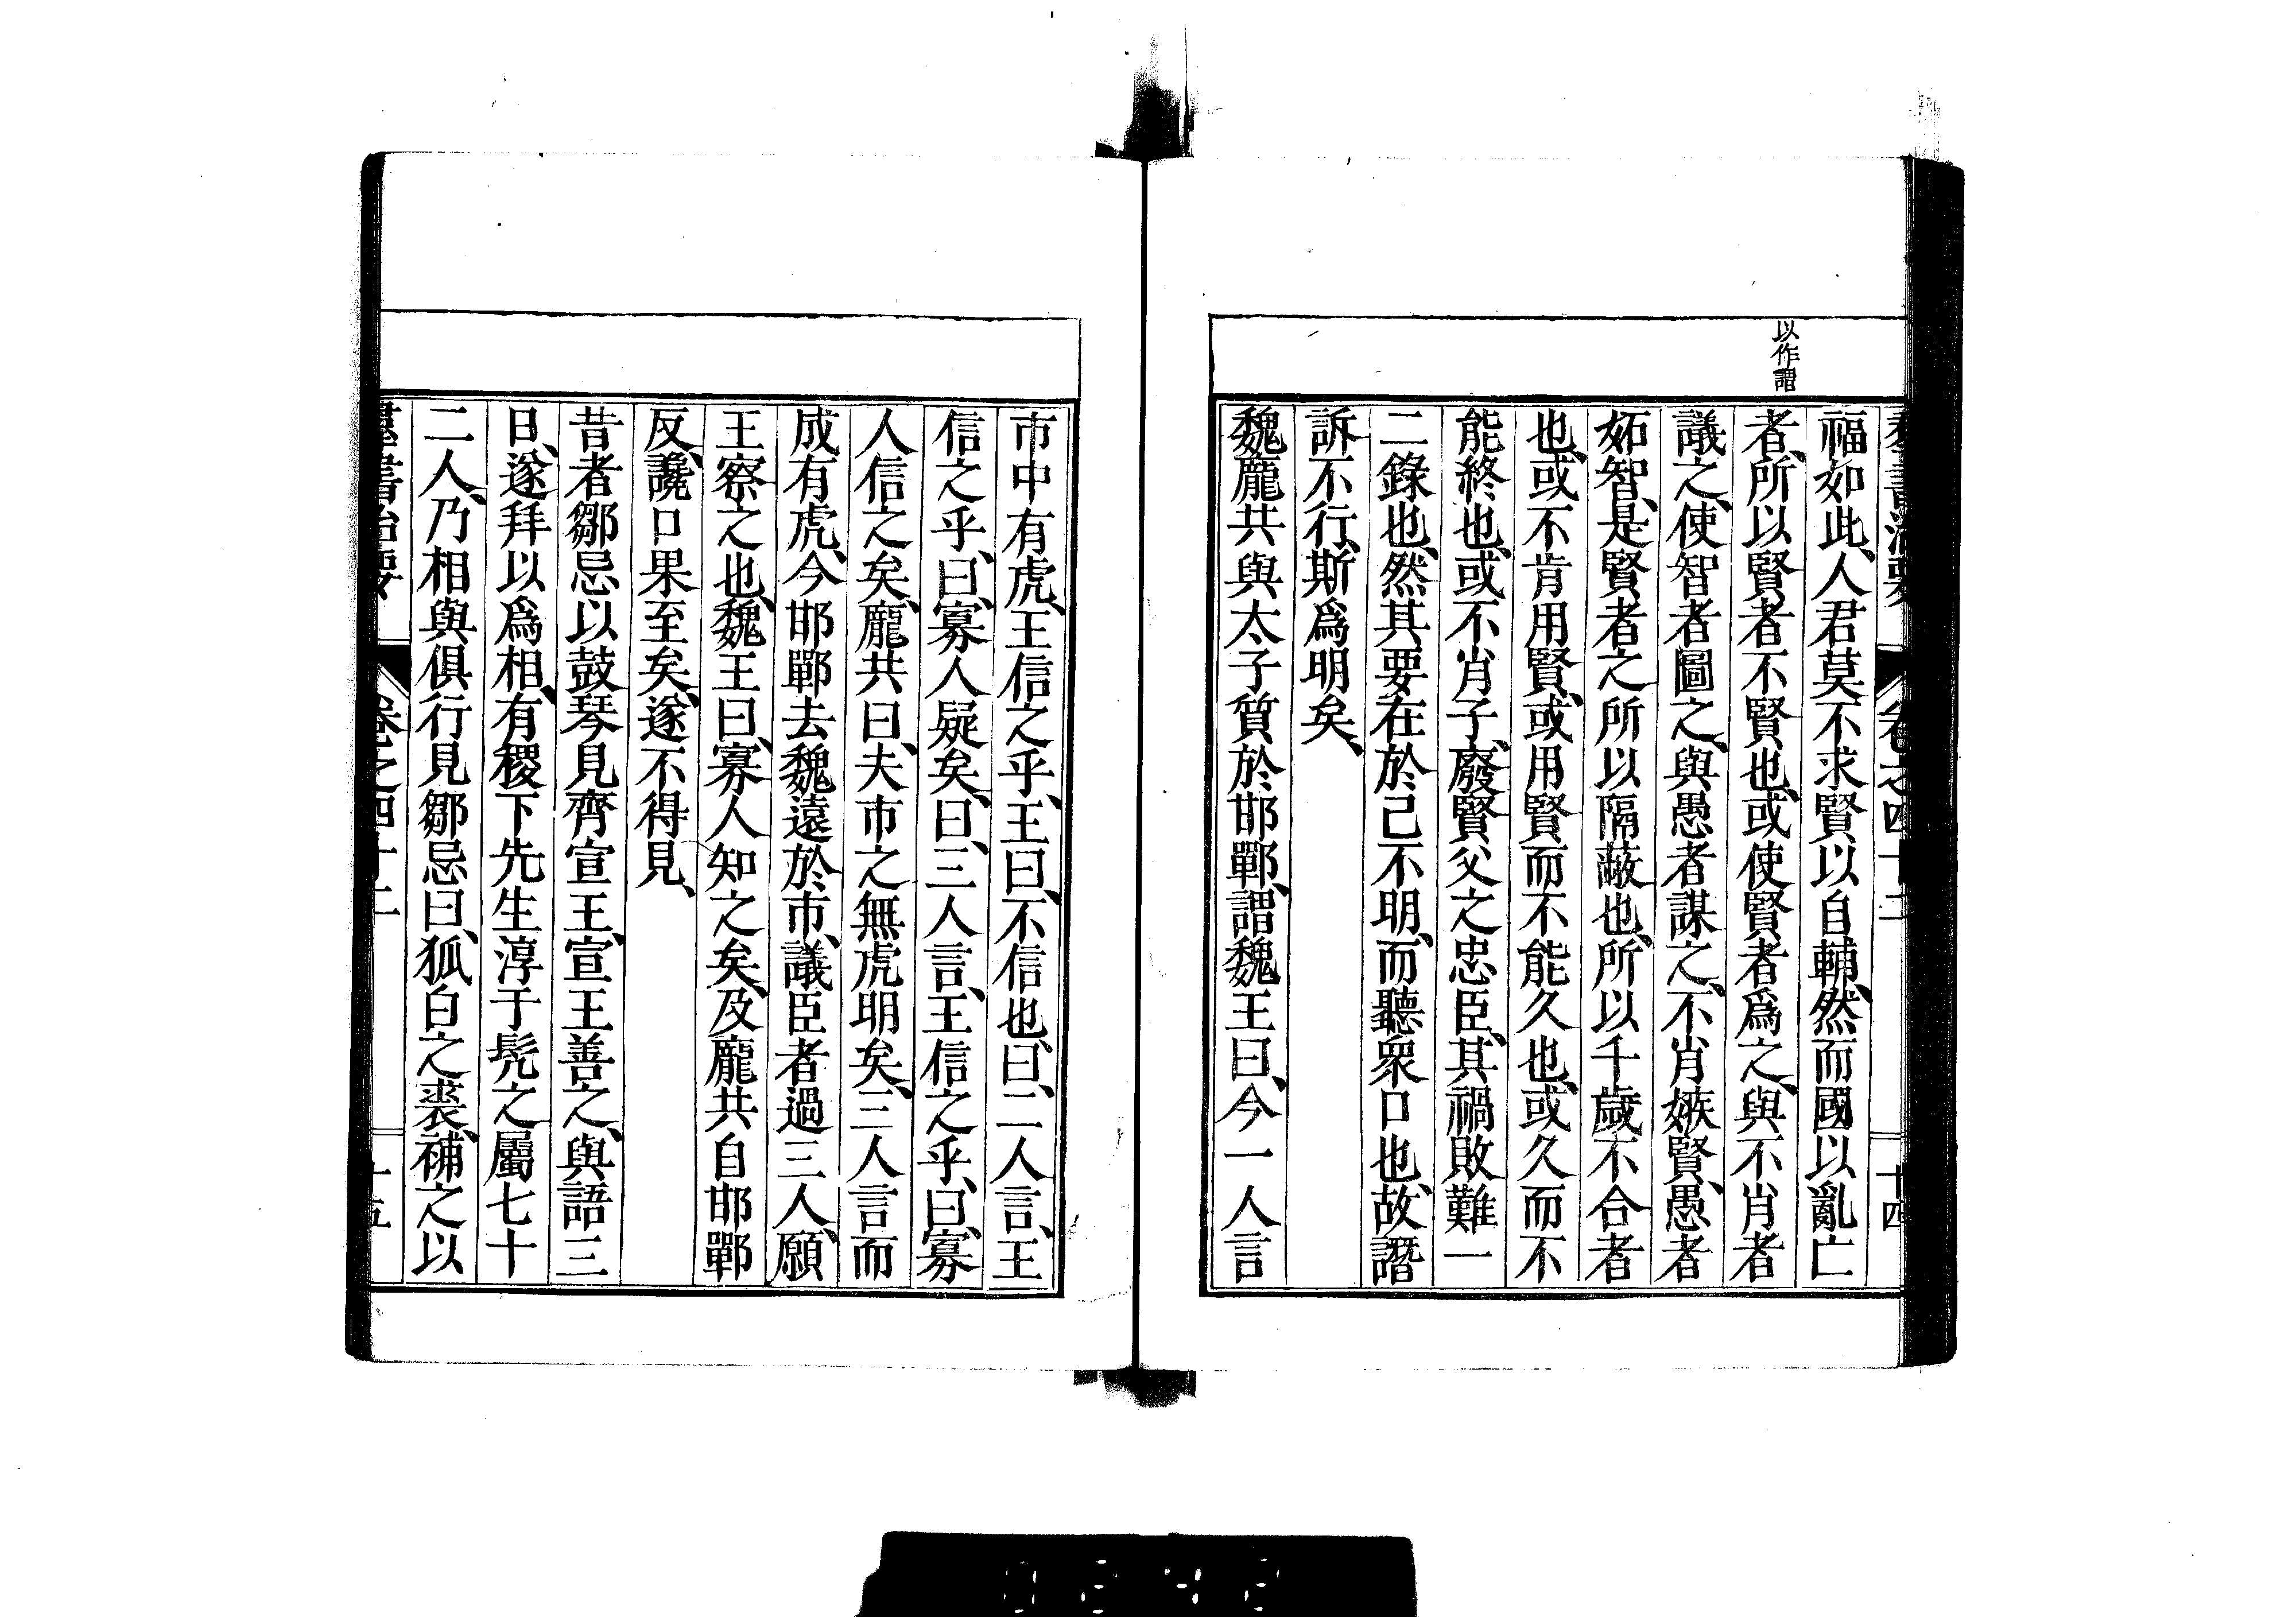 羣書治要 卷之四十二 十四
以作謂
福如此、人君莫不求賢以自輔、然而國以亂亡
者、所以賢者不賢也、或使賢者爲之、與不肖者
議之、使智者圖之、與愚者謀之、不肖嫉賢、愚者
妬智、是賢者之所以隔蔽也、所以千歲不合者
也、或不肯用賢、或用賢而不能久也、或久而不
能終也、或不肖子、廢賢父之忠臣、其禍敗難一
二錄也、然其要在於己不明、而聽衆口也、故譖
訴不行、斯爲明矣、
魏龐共與太子質於邯鄲、謂魏王曰、今一人言
市中有虎、王信之乎、王曰、不信也、曰、二人言、王
信之乎、曰、寡人疑矣、曰、三人言、王信之乎、曰、寡
人信之矣、龐共曰、夫市之無虎明矣、三人言而
成有虎、今邯鄲去魏遠於市、議臣者過三人、願
王察之也、魏王曰、寡人知之矣、及龐共自邯鄲
反、讒口果至矣、遂不得見、
昔者鄒忌以鼓琴見齊宣王、宣王善之、與語三
日、遂拜以爲相、有稷下先生淳于髡之屬七十
二人、乃相與俱行見鄒忌曰、狐白之裘、補之以
羣書治要 卷之四十二 十五